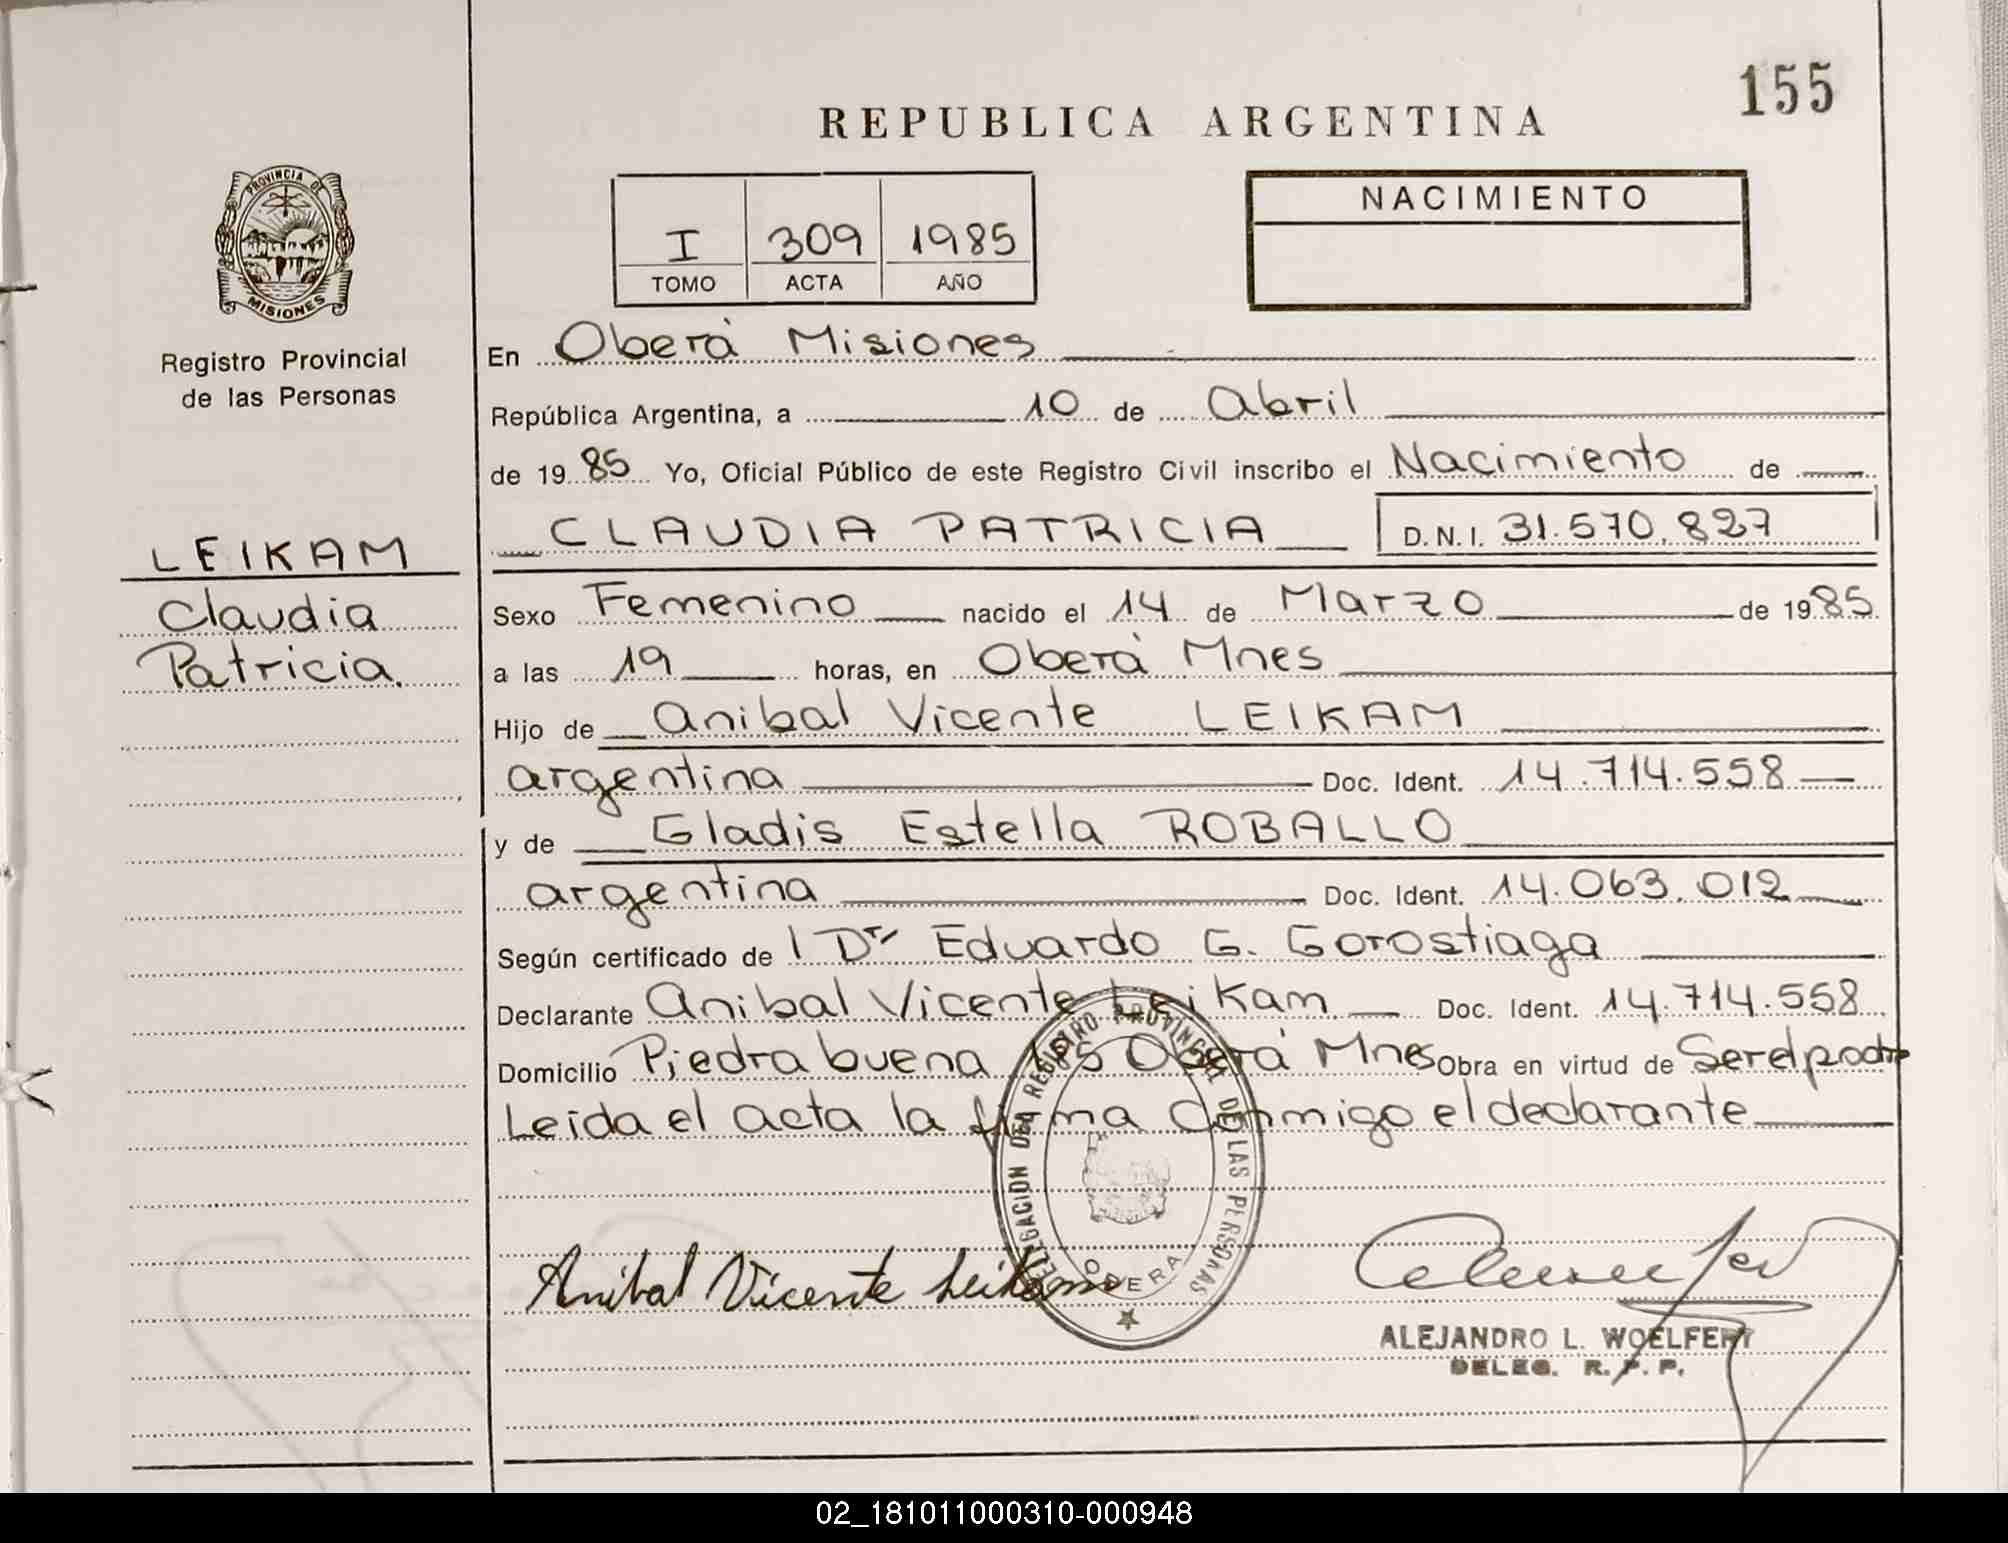 155
REPUBLICA ARGENTINA
PROVINCIA DE
MISIONES
Registro Provincial
de las Personas
I 309 1985
TOMO ACTA AÑO
NACIMIENTO
En Oberá Misiones
República Argentina, a 10 de Abril
de 19 85 Yo, Oficial Público de este Registro Civil inscribo el Nacimiento de
CLAUDIA PATRICIA D.N.I. 31.570.827
LEIKAM
Claudia
Patricia.
Sexo Femenino nacido el 14 de Marzo de 1985
a las 19 horas, en Oberá Mnes
Hijo de Anibal Vicente LEIKAM
argentina Doc. Ident. 14.714.558
y de Gladis Estella ROBALLO
argentina Doc. Ident. 14.063.012
Según certificado de l Dr Eduardo G. Gorostiaga
Declarante Anibal Vicente Leikam Doc. Ident. 14.714.558
Domicilio Piedrabuena Oberá Mnes Obra en virtud de Ser el padre
Leida el acta la firma conmigo el declarante
DELEGACION DEL REGISTRO PROVINCIAL DE LAS PERSONAS
OBERA
Anibal Vicente Leikam
ALEJANDRO L. WOELFERT
DELEG. R. P. P.
02_181011000310-000948